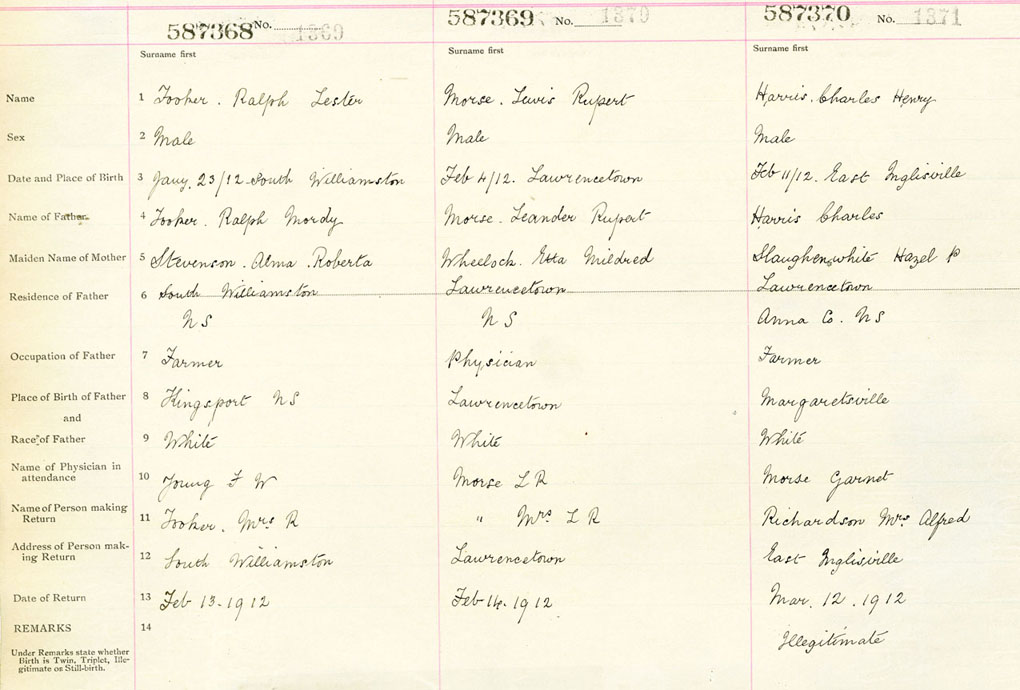 587368 No. 1369 587369 No. 1370 587370 No. 1371
Surname first Surname first Surname first
Name 1 Tooker. Ralph Lester Morse. Lewis Rupert Harris. Charles Henry
Sex 2 Male Male Male
Date and Place of Birth 3 Jany. 23/12 South Williamston Feb 4/12. Lawrencetown Feb 11/12. East Inglisville
Name of Father 4 Tooker. Ralph Mordy Morse. Leander Rupert Harris Charles
Maiden Name of Mother 5 Stevenson. Alma. Roberta Wheelock. Etta Mildred Slaughenwhite Hazel P
Residence of Father 6 South Williamston Lawrencetown Lawrencetown
NS NS Anna Co. NS
Occupation of Father 7 Farmer Physician Farmer
Place of Birth of Father 8 Kingsport NS Lawrencetown Margaretsville
and
Race of Father 9 White White White
Name of Physician in
attendance 10 Young F W Morse L R Morse Garnet
Name of Person making
Return 11 Tooker. Mrs R " Mrs L R Richardson Mrs Alfred
Address of Person mak-
ing Return 12 South Williamston Lawrencetown East Inglisville
Date of Return 13 Feb 13. 1912 Feb 14. 1912 Mar. 12. 1912
REMARKS 14 Illegitimate
Under Remarks state whether
Birth is Twin, Triplet, Ille-
gitimate or Still-birth.